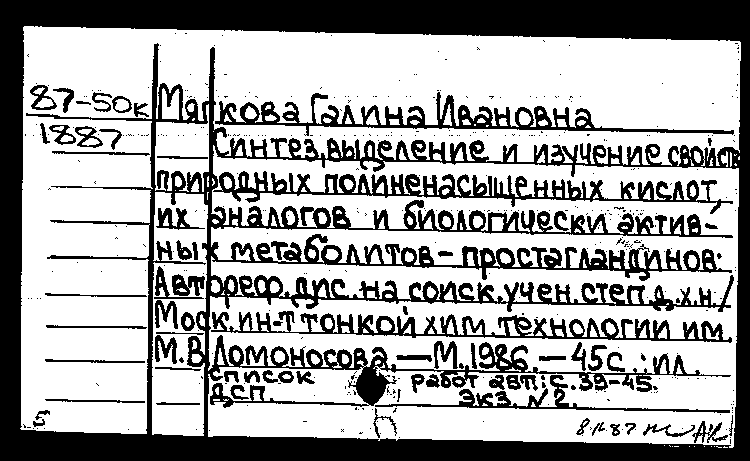 87-50к Мягкова, Галина Ивановна
1887 Синтез, выделение и изучение свойств
природных полиненасыщенных кислот,
их аналогов и биологически актив-
ных метаболитов - простагландинов:
Автореф. дис. на соиск. учен. степ. д.х.н./
Моск. ин-т тонкой хим. технологии им.
М.В. Ломоносова. — М., 1986. — 45с.: ил.
список работ авт.: с. 39-45.
ДСП. Экз. №2.
5